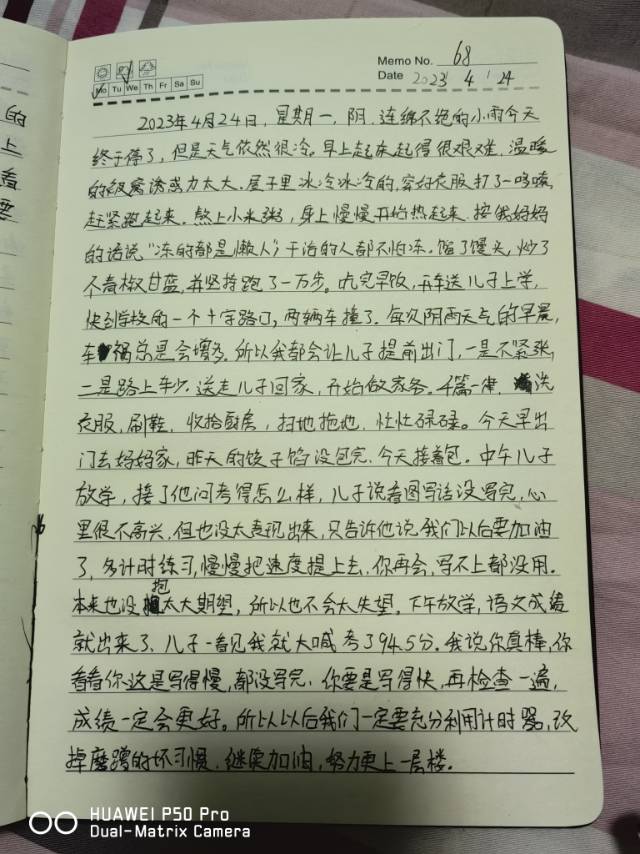 Memo No. 68
Mo Tu We Th Fr Sa Su
Date 2023 / 4 / 24
2023年4月24日，星期一，阴，连绵不绝的小雨今天
终于停了，但是天气依然很冷。早上起床起得很艰难，温暖
的被窝诱惑力太大。屋子里冰冷冰冷的，穿好衣服打了一哆嗦，
赶紧跑起来。熬上小米粥，身上慢慢开始热起来，按我妈妈
的话说“冻的都是懒人”，干活的人都不怕冻。馏了馒头，炒了
个青椒甘蓝，并坚持跑了一万步。吃完早饭，开车送儿子上学，
快到学校的一个十字路口，两辆车撞了。每次阴雨天气的早晨，
车祸总是会增多。所以我都会让儿子提前出门，一是不紧张，
二是路上车少。送走儿子回家，开始做家务。洗
衣服，刷鞋，收拾厨房，扫地拖地，忙忙碌碌。今天早出
门去妈妈家，昨天的饺子馅没包完，今天接着包。中午儿子
放学，接了他问考得怎么样，儿子说看图写话没写完，心
里很不高兴，但也没太表现出来，只告诉他说我们以后要加油
了，多计时练习，慢慢把速度提上去，你再会，写不上都没用。
本来也没抱太大期望，所以也不会太失望。下午放学，语文成绩
就出来了，儿子一看见我就大喊考了94.5分。我说你真棒，你
看看你这是写得慢，都没写完，你要是写得快，再检查一遍，
成绩一定会更好。所以以后我们一定要充分利用计时器，改
掉磨蹭的坏习惯，继续加油，努力更上一层楼。
的
上
看
HUAWEI P50 Pro
Dual-Matrix Camera